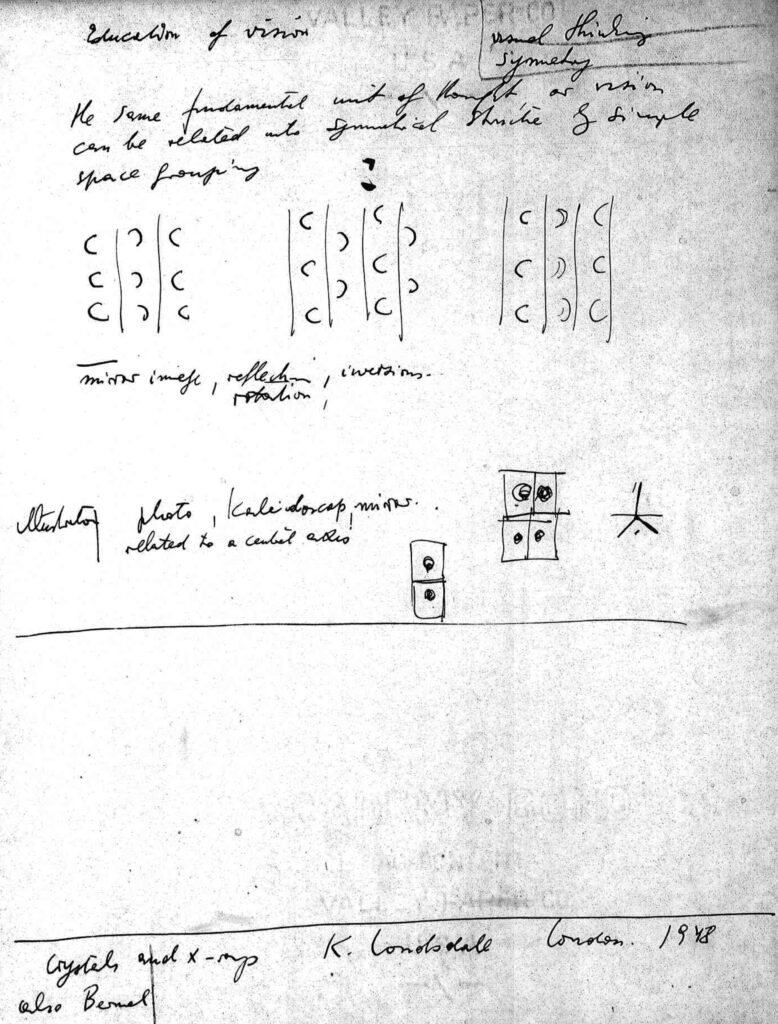 Education of vision
visual thinking
symmetry
The same fundamental unit of thought or vision
can be related into symmetrical structure by simple
space grouping
mirror image, reflection, inversions.
rotation,
Illustration photo, Kaleidoscop, mirror.
related to a central axis
Crystals and X-rays K. Londsdale London. 1948
also Bernal